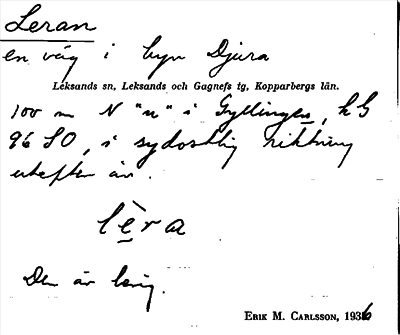 Leran
en väg i byn Djura
Leksands sn, Leksands och Gagnefs tg, Kopparbergs län.
100 m N "n" i Gyllingen, k G
96 SO, i sydostlig riktning
utefter än.
lèra
Den är lerig.
Erik M. Carlsson, 1936